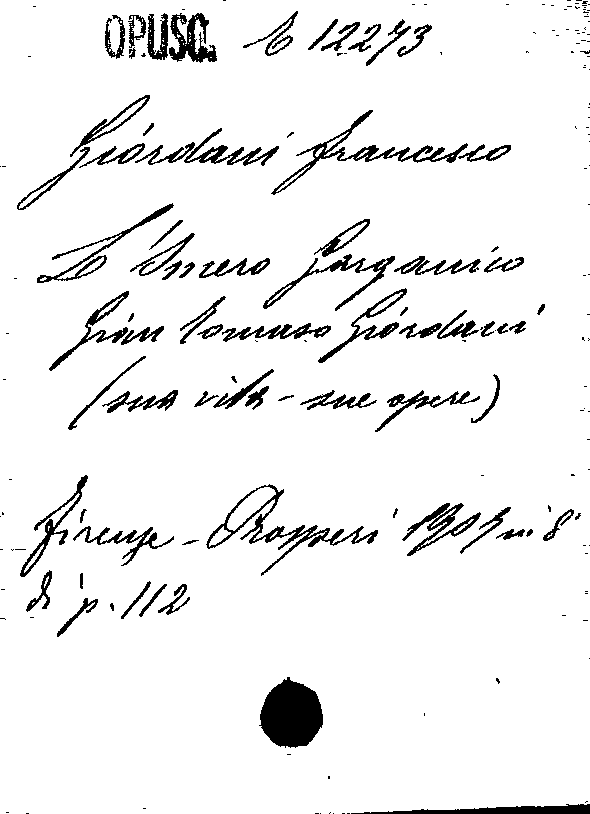 OPUSC. E 12273
Giordani Francesco
L'Omero Garganico
Gian Tomaso Giordani
(sua vita - sue opere)
Firenze - Prosperi 1907 in 8°
di p. 112